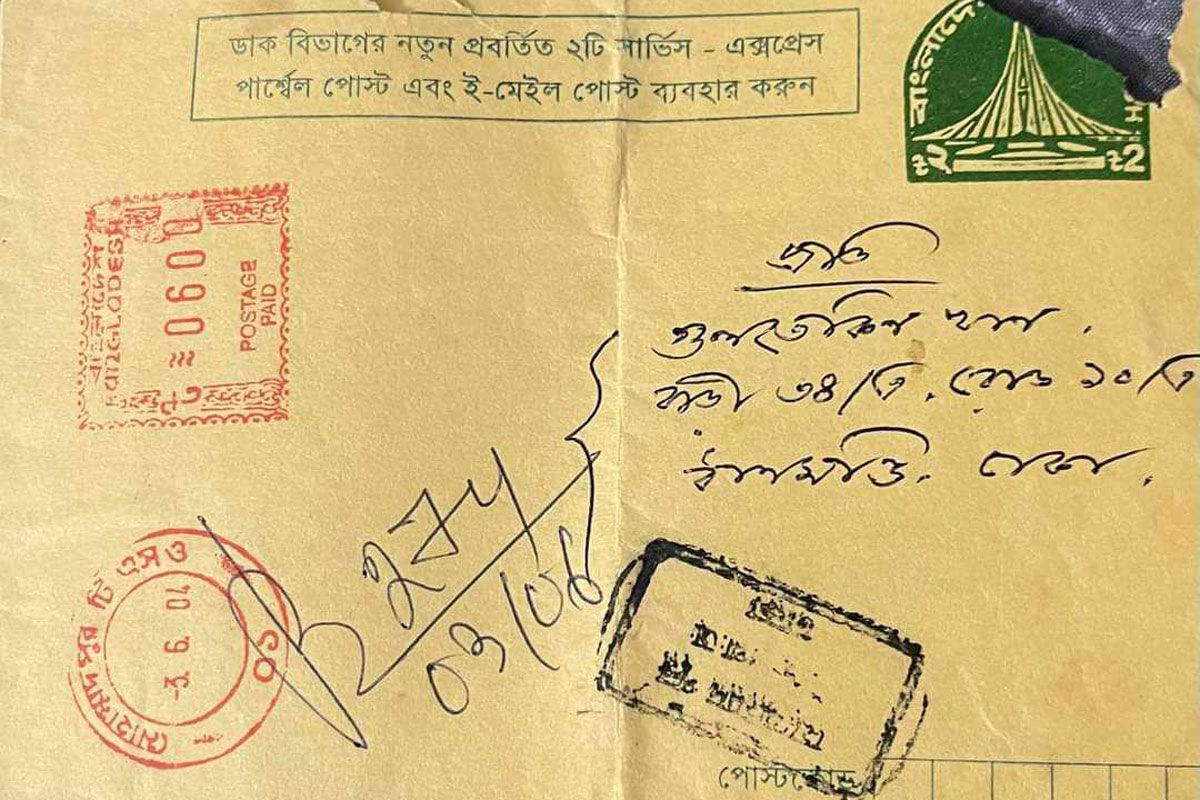 ডাক বিভাগের নতুন প্রবর্তিত ২টি সার্ভিস - এক্সপ্রেস
পার্শ্বেল পোস্ট এবং ই-মেইল পোস্ট ব্যবহার করুন
বাংলাদে
ট২ ট2
বাংলাদেশ
BANGLADESH
0600
POSTAGE
PAID
প্রতি
গুলতেকিন খান .
বাড়ী ৩৪/এ . রোড ১০/এ
ধানমন্ডি . ঢাকা .
মোহাম্মদপুর টি এসও
-3. 6. 04
০১
পোস্টকোড